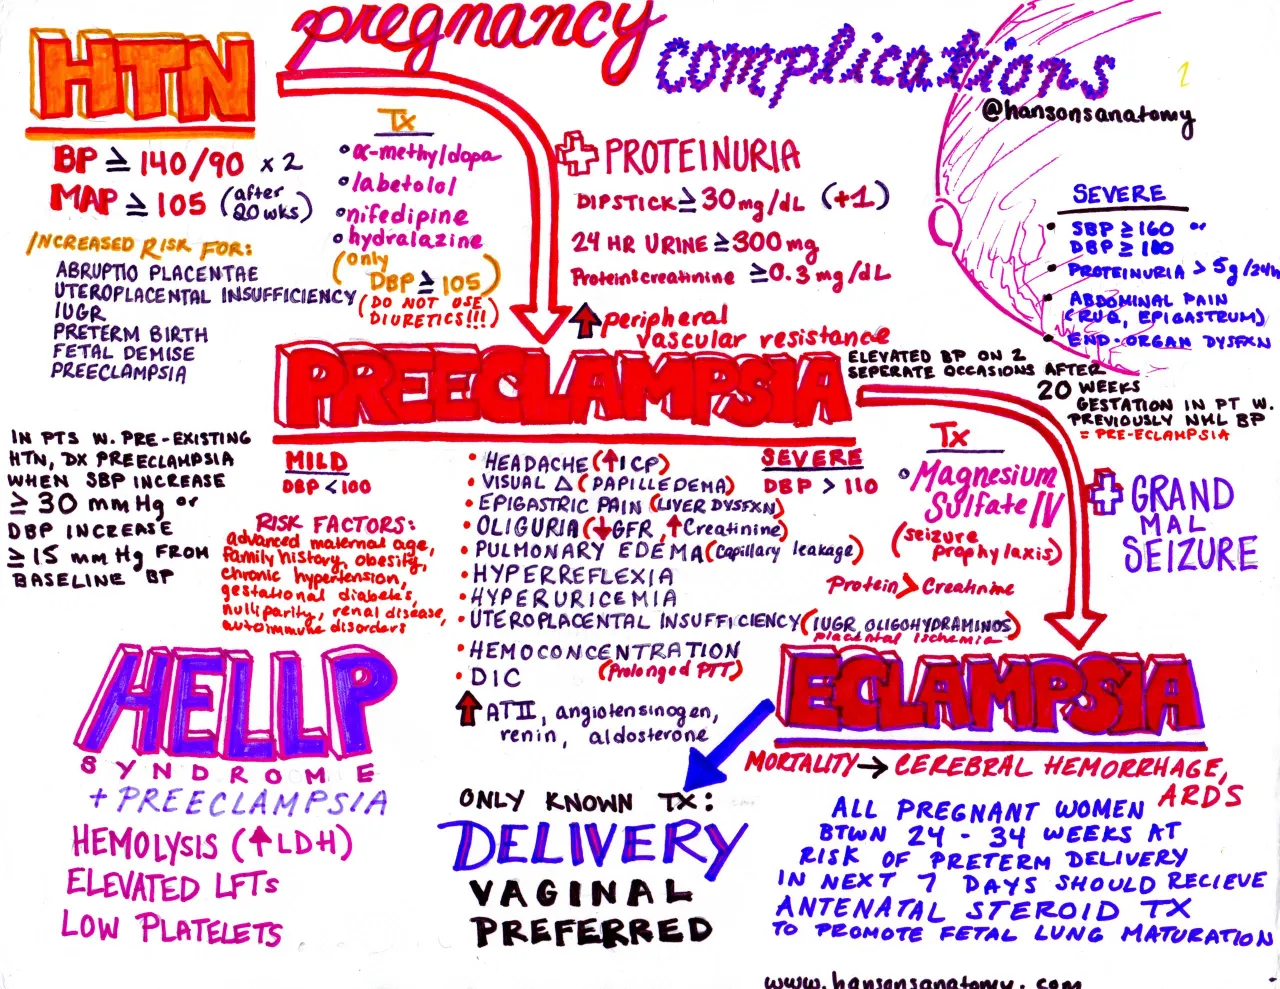 pregnancy
complications
1
@hansonsanatomy
HTN
BP ≥ 140/90 x 2
MAP ≥ 105 (after
20 wks)
INCREASED RISK FOR:
ABRUPTIO PLACENTAE
UTEROPLACENTAL INSUFFICIENCY
IUGR
PRETERM BIRTH
FETAL DEMISE
PREECLAMPSIA
Tx
α-methyldopa
labetolol
nifedipine
hydralazine
(only
DBP ≥ 105)
(DO NOT USE
DIURETICS!!!)
+ PROTEINURIA
DIPSTICK ≥ 30 mg/dL (+1)
24 HR URINE ≥ 300 mg
Protein:creatinine ≥ 0.3 mg/dL
↑ peripheral
vascular resistance
SEVERE
• SBP ≥ 160 or
DBP ≥ 110
• PROTEINURIA > 5g/24h
• ABDOMINAL PAIN
(RUQ, EPIGASTRUM)
• END-ORGAN DYSFXN
PREECLAMPSIA
ELEVATED BP ON 2
SEPERATE OCCASIONS AFTER
20 WEEKS
GESTATION IN PT W.
PREVIOUSLY NML BP
= PRE-ECLAMPSIA
IN PTS W. PRE-EXISTING
HTN, DX PREECLAMPSIA
WHEN SBP INCREASE
≥ 30 mm Hg or
DBP INCREASE
≥ 15 mm Hg FROM
BASELINE BP
MILD
DBP < 100
RISK FACTORS:
advanced maternal age,
family history, obesity,
chronic hypertension,
gestational diabetes,
nulliparity, renal disease,
autoimmune disorders
• HEADACHE (↑ICP)
• VISUAL Δ (PAPILLEDEMA)
• EPIGASTRIC PAIN (LIVER DYSFXN)
• OLIGURIA (↓GFR, ↑Creatinine)
• PULMONARY EDEMA (capillary leakage)
• HYPERREFLEXIA
• HYPERURICEMIA
• UTEROPLACENTAL INSUFFICIENCY (IUGR, OLIGOHYDRAMINOS)
placental ischemia
• HEMOCONCENTRATION
• DIC (Prolonged PTT)
↑ ATII, angiotensinogen,
renin, aldosterone
SEVERE
DBP > 110
Tx
Magnesium
Sulfate IV
(seizure
prophylaxis)
Protein > Creatinine
+ GRAND
MAL
SEIZURE
HELLP
SYNDROME
+ PREECLAMPSIA
HEMOLYSIS (↑LDH)
ELEVATED LFTs
LOW PLATELETS
ECLAMPSIA
MORTALITY → CEREBRAL HEMORRHAGE,
ARDS
ONLY KNOWN TX:
DELIVERY
VAGINAL
PREFERRED
ALL PREGNANT WOMEN
BTWN 24 - 34 WEEKS AT
RISK OF PRETERM DELIVERY
IN NEXT 7 DAYS SHOULD RECIEVE
ANTENATAL STEROID TX
TO PROMOTE FETAL LUNG MATURATION
www.hansonsanatomy.com